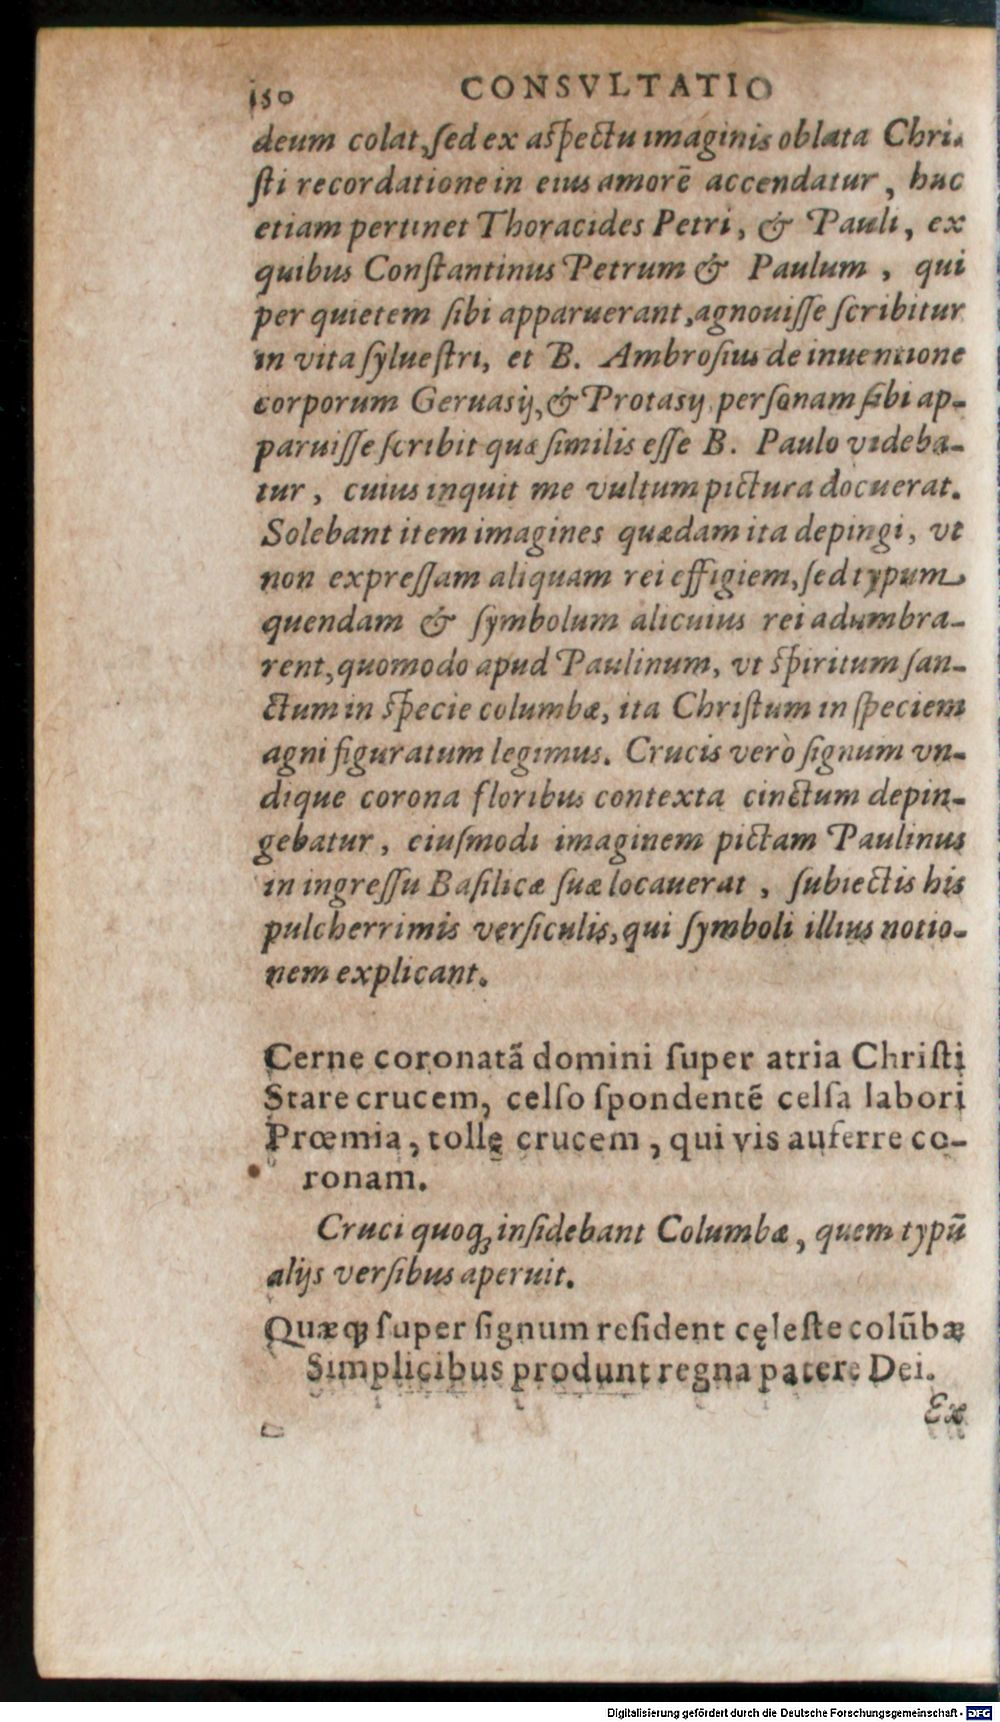 150 CONSVLTATIO
deum colat, ſed ex aſpectu imaginis oblata Chri-
ſti recordatione in eius amorē accendatur, huc
etiam pertinet Thoracides Petri, & Pauli, ex
quibus Conſtantinus Petrum & Paulum, qui
per quietem ſibi apparuerant, agnouiſſe ſcribitur
in vita ſylueſtri, et B. Ambroſius de inuentione
corporum Geruasij, & Protasij perſonam ſibi ap-
paruiſſe ſcribit quæ ſimilis eſſe B. Paulo videba-
tur, cuius inquit me vultum pictura docuerat.
Solebant item imagines quædam ita depingi, vt
non expreſſam aliquam rei effigiem, ſed typum
quendam & ſymbolum alicuius rei adumbra-
rent, quomodo apud Paulinum, vt ſpiritum ſan-
ctum in ſpecie columbæ, ita Chriſtum in ſpeciem
agni figuratum legimus. Crucis verò ſignum vn-
dique corona floribus contexta cinctum depin-
gebatur, eiuſmodi imaginem pictam Paulinus
in ingreſſu Baſilicæ ſuæ locauerat, ſubiectis his
pulcherrimis verſiculis, qui ſymboli illius notio-
nem explicant.
Cerne coronatã domini ſuper atria Chriſti
Stare crucem, celſo ſpondentē celſa labori
Prœmia, tolle crucem, qui vis auferre co-
ronam.
Cruci quoq; inſidebant Columbæ, quem typū
alijs verſibus aperuit.
Quæq; ſuper ſignum reſident cęleſte colūbæ
Simplicibus produnt regna patere Dei.
Ex
Digitalisierung gefördert durch die Deutsche Forschungsgemeinschaft - DFG